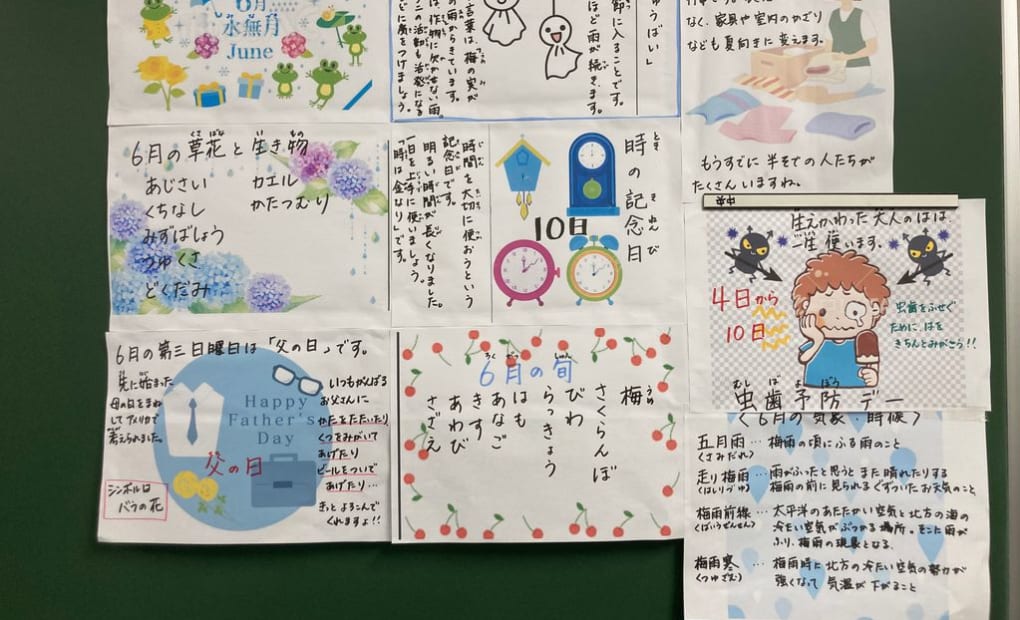 6月
水無月
June
ゅうばい」
節に入ることです。
ほど雨が続きます。
言葉は、梅の実が
の雨からきています。
は、作物に欠かせない雨。
ニの活動も活発になる
どに気をつけましょう。
なく、家具や室内のかざり
なども夏向きに変えます。
もうすでに半そでの人たちが
たくさんいますね。
6月の草花と生き物
あじさい
くちなし
みずばしょう
つゆくさ
どくだみ
カエル
かたつむり
時の記念日
10日
時間を大切に使おうという
記念日です。
明るい時間が長くなりました。
一日を上手に使いましょう。
「時は金なり」です。
生えかわった大人のはは
一生使います。
4日から
10日
虫歯をふせぐ
ために、はを
きちんとみがこう!!
虫歯予防デー
むしばよぼう
6月の第三日曜日は「父の日」です。
先に始まった
母の日をまね
してアメリカで
考えられました。
シンボルは
バラの花
Happy
Father's
Day
父の日
いつもがんばる
お父さんに
かたをたたいたり
くつをみがいて
あげたり
ビールをついで
あげたり…
きっとよろこんで
くれますよ!!
6月の旬
ろくがつ しゅん
梅
さくらんぼ
びわ
らっきょう
はも
あなご
きす
あわび
さざえ
(6月の気象・時候)
五月雨…梅雨の頃にふる雨のこと
(さみだれ)
走り梅雨…雨がふったと思うとまた晴れたりする
(はしりづゆ) 梅雨の前に見られるぐずついたお天気のこと
梅雨前線…太平洋のあたたかい空気と北方の海の
(ばいうぜんせん) 冷たい空気がぶつかる場所。そこに雨が
ふり、梅雨の現象となる。
梅雨寒…梅雨時に北方の冷たい空気の勢力が
(つゆざむ) 強くなって気温が下がること